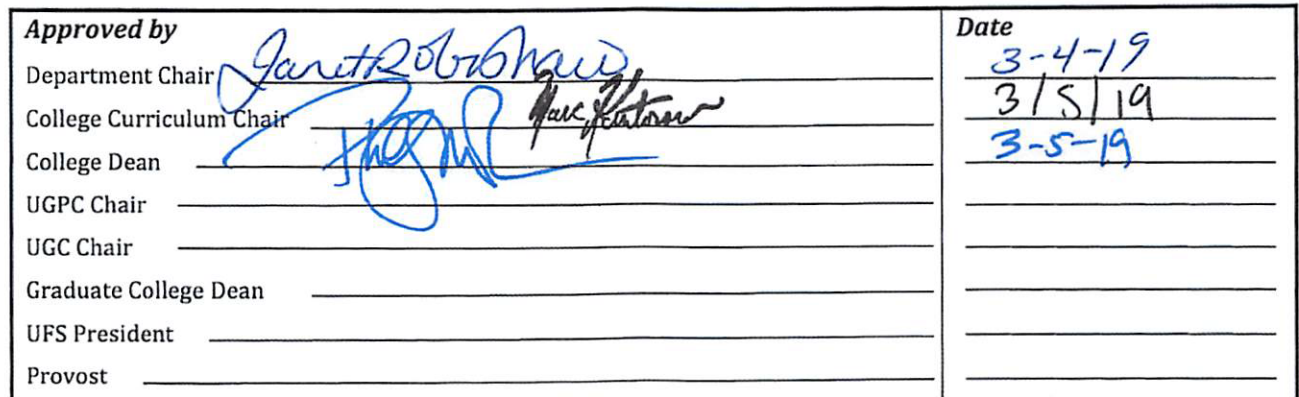 Approved by Date
Department Chair Janet Robishaw 3-4-19
College Curriculum Chair Marc Kantorow 3/5/19
College Dean 3-5-19
UGPC Chair
UGC Chair
Graduate College Dean
UFS President
Provost